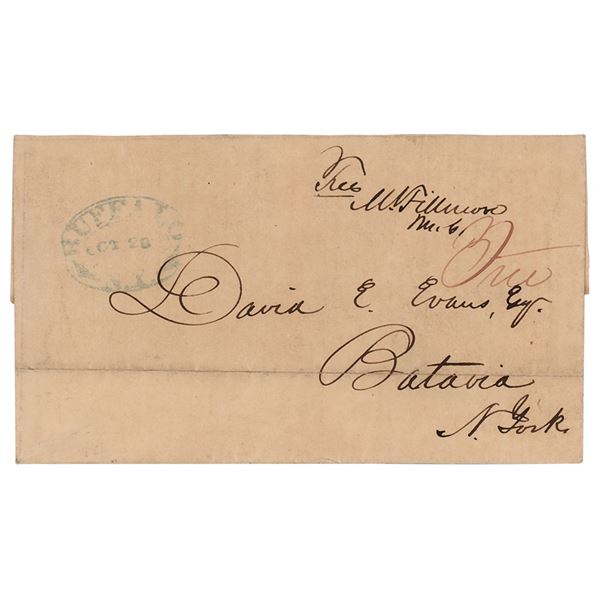 BUFFALO
OCT 28
N.Y.
Free
M. Fillmore
M.C.
Free
David E. Evans, Esq.
Batavia
N. York.